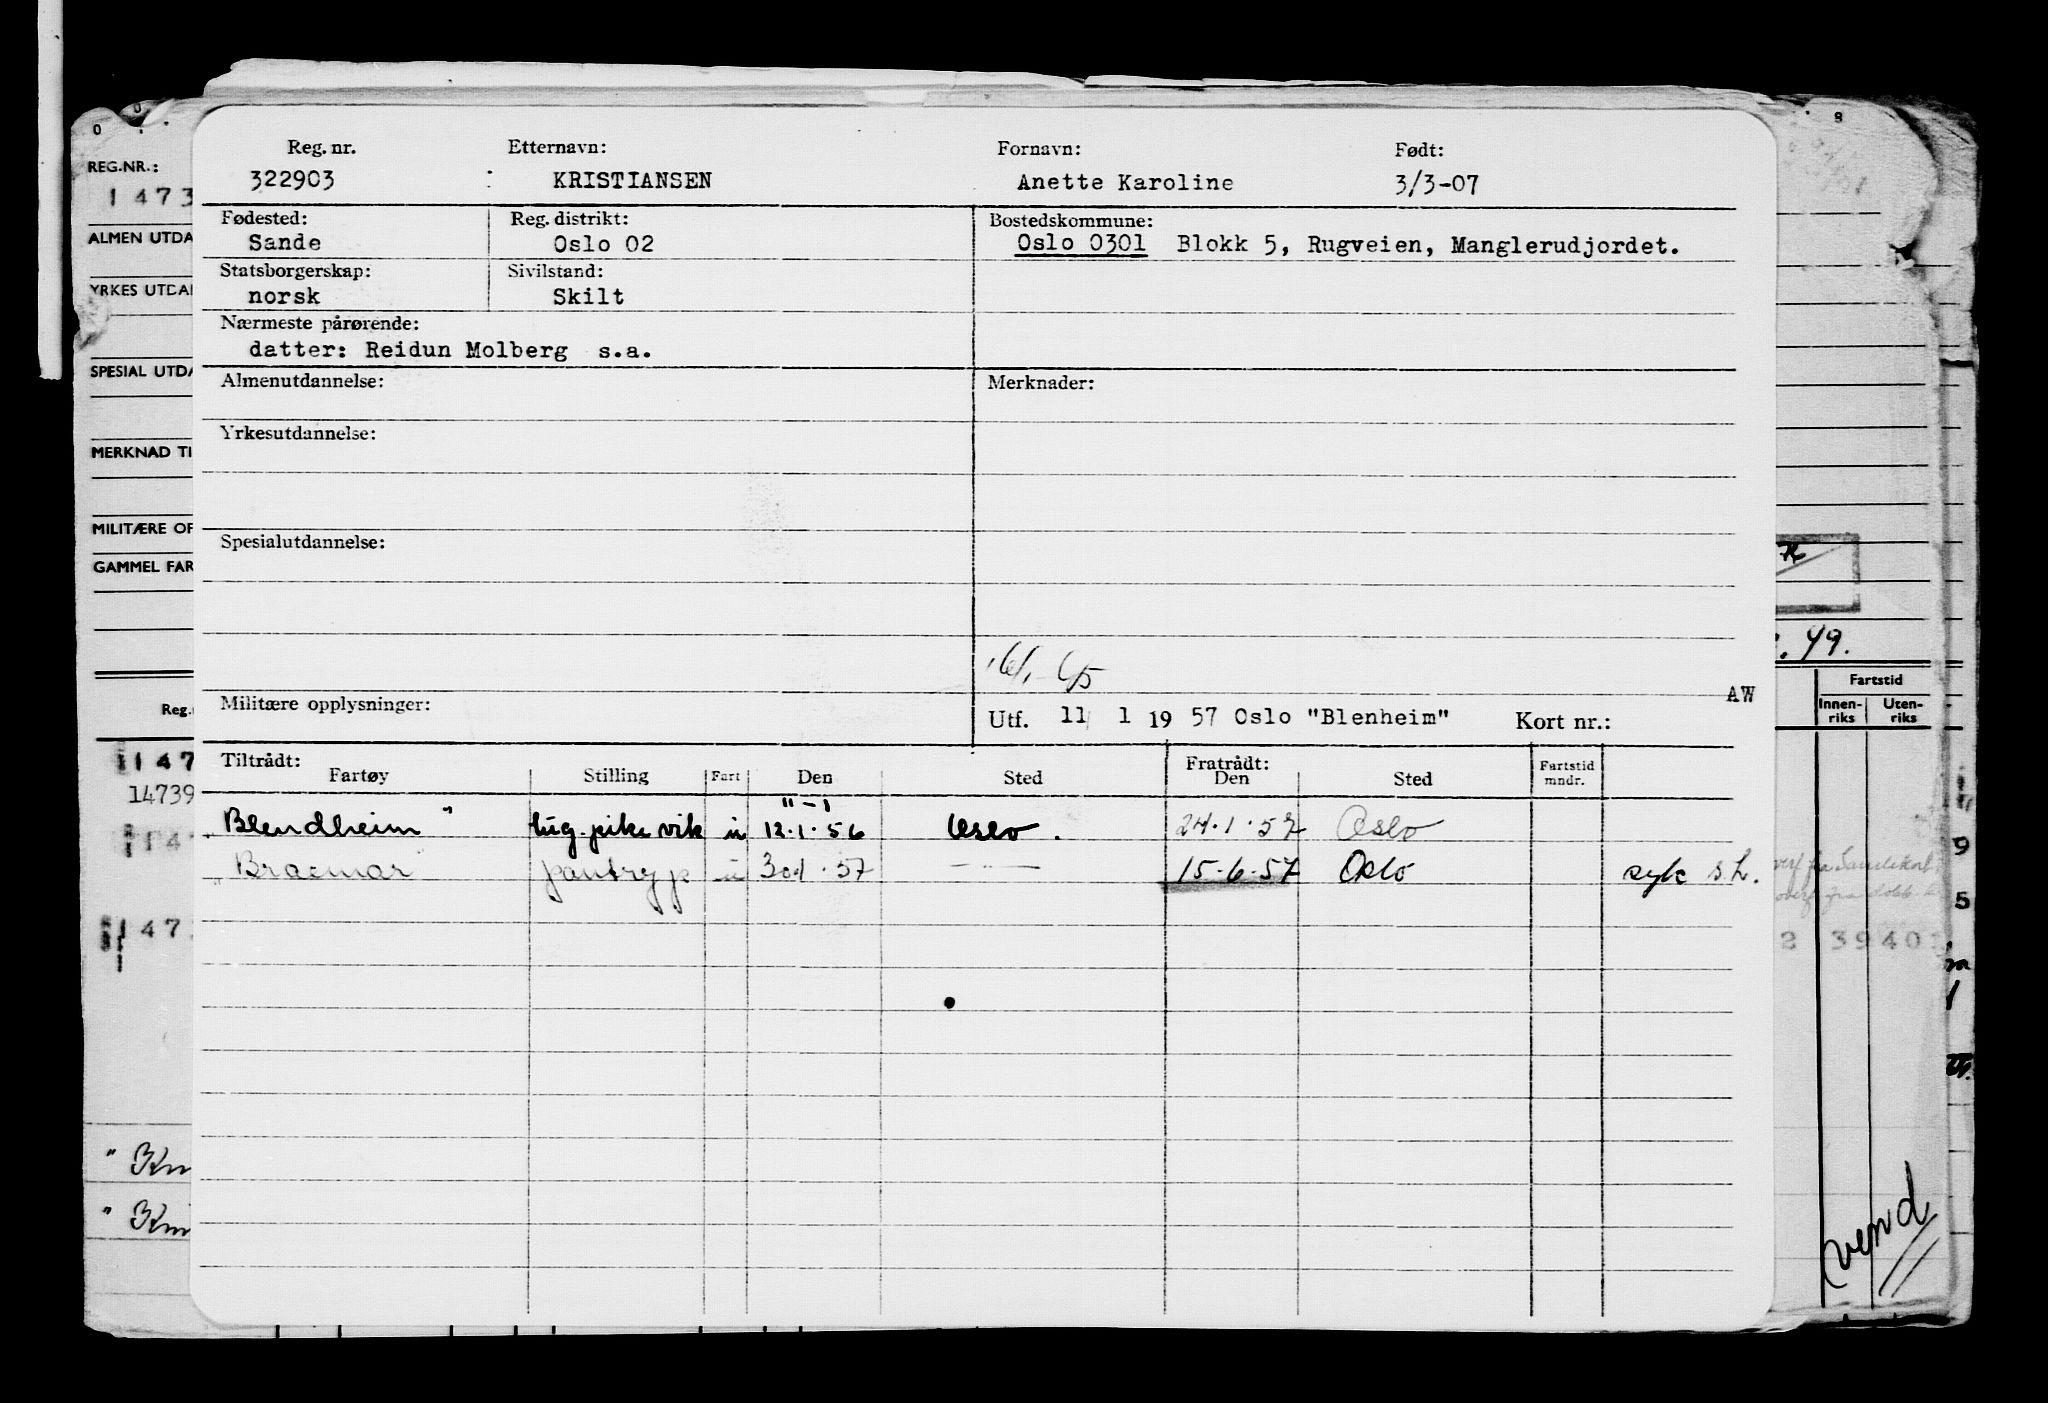 Reg. nr. Etternavn: Fornavn: Født:
322903 : KRISTIANSEN Anette Karoline 3/3-07
Fødested: Reg. distrikt: Bostedskommune:
Sande Oslo 02 Oslo 0301 Blokk 5, Rugveien, Manglerudjordet.
Statsborgerskap: Sivilstand:
norsk Skilt
Nærmeste pårørende:
datter: Reidun Molberg s.a.
Almenutdannelse: Merknader:
Yrkesutdannelse:
Spesialutdannelse:
Militære opplysninger: AW
Utf. 11/ 1 19 57 Oslo "Blenheim" Kort nr.:
Tiltrådt: Fratrådt:
Fartøy Stilling Fart Den Sted Den Sted Fartstid mndr.
" – 1
"Blendheim" lug.pike vik u 12.1.56 Oslo. 24.1.57 Oslo
"Braemar pantryp u 30/1.57 — — 15-6-57 Oslo syk s.L.
REG.NR.:
1473
ALMEN UTDA
YRKES UTDA
SPESIAL UTDA
MERKNAD TI
MILITÆRE OP
GAMMEL FAR
Reg.
147
14739
147
147
" Kn
" Kn
49.
Fartstid
Innen-riks Uten-riks
9
5
2 3940
vend